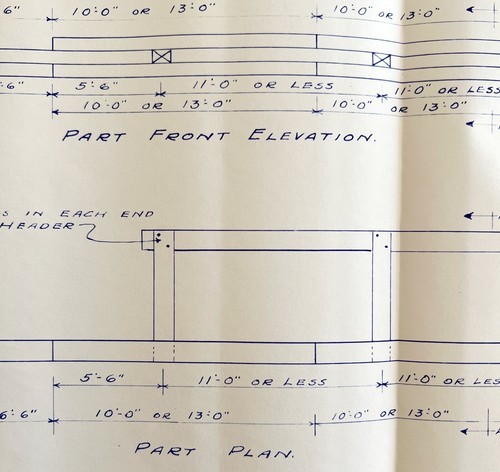 6" 10'-0" OR 13'-0" 10'-0" OR 13'-0"
6" 5'-6" 11'-0" OR LESS 11'-0" OR LESS
10'-0" OR 13'-0" 10'-0" OR 13'-0"
PART FRONT ELEVATION.
S IN EACH END
HEADER
5'-6" 11'-0" OR LESS 11'-0" OR LESS
6'-6" 10'-0" OR 13'-0" 10'-0" OR 13'-0"
PART PLAN.